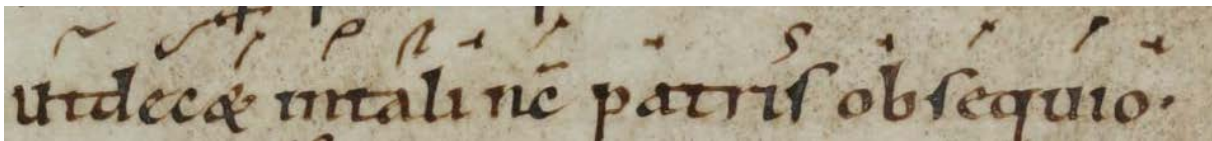 utdec& intali nc̄ patris obsequio·